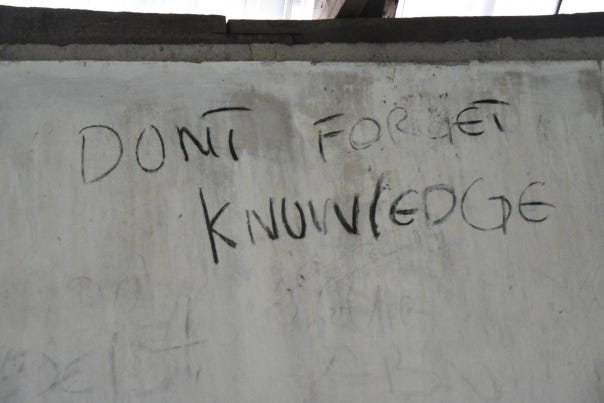 DONT FORGET
KNOWLEDGE